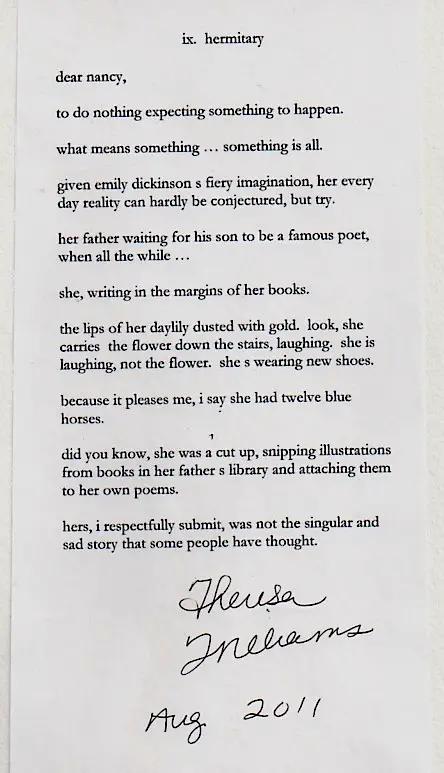 ix. hermitary
dear nancy,
to do nothing expecting something to happen.
what means something ... something is all.
given emily dickinson s fiery imagination, her every
day reality can hardly be conjectured, but try.
her father waiting for his son to be a famous poet,
when all the while ...
she, writing in the margins of her books.
the lips of her daylily dusted with gold. look, she
carries the flower down the stairs, laughing. she is
laughing, not the flower. she s wearing new shoes.
because it pleases me, i say she had twelve blue
horses.
did you know, she was a cut up, snipping illustrations
from books in her father s library and attaching them
to her own poems.
hers, i respectfully submit, was not the singular and
sad story that some people have thought.
Theresa
Williams
Aug 2011